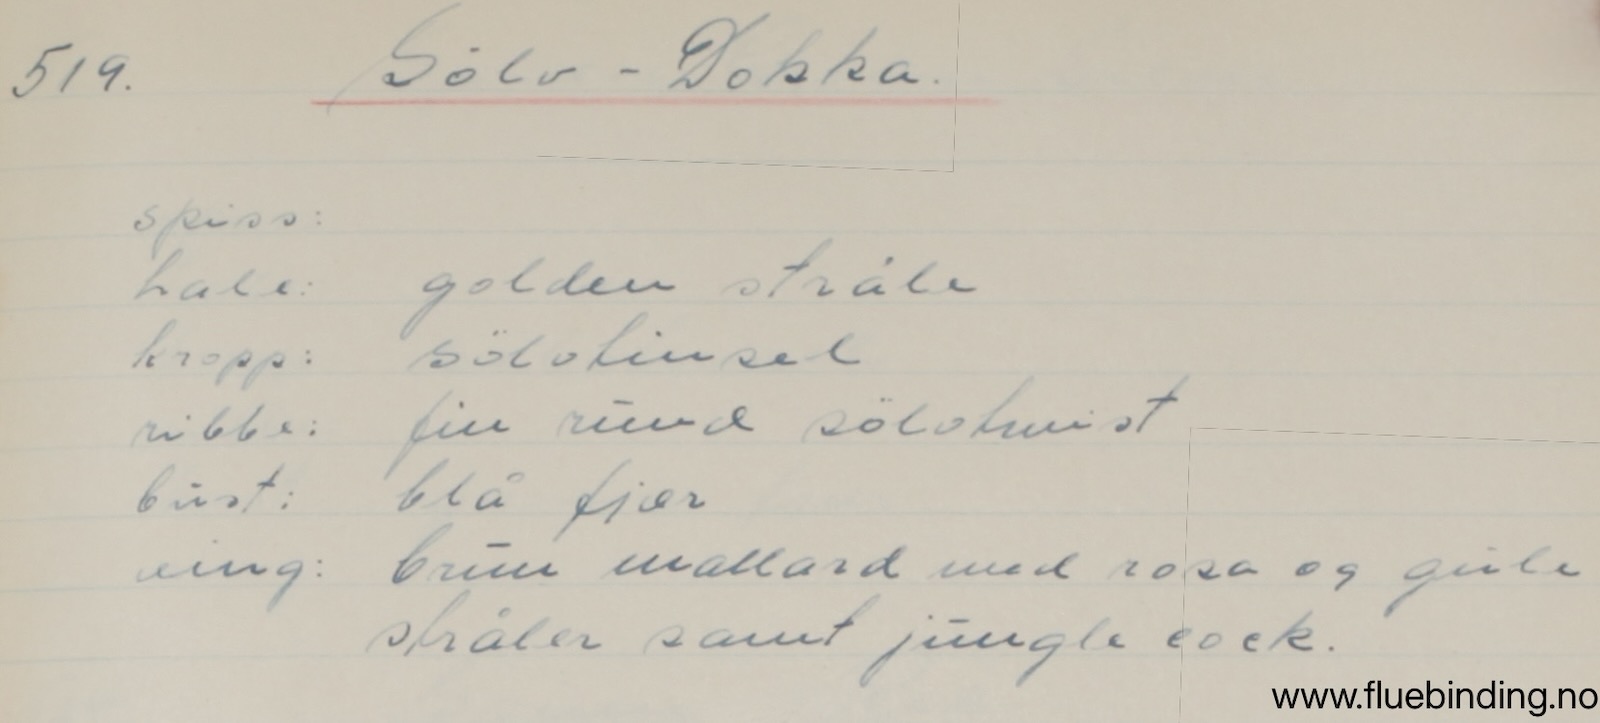 519. Sölv - Dokka.
spiss:
hale: golden stråle
kropp: sölvtinsel
ribbe: fin rūnd sölvtwist
būst: blå fjær
ving: brūn mallard med rosa og gūle
stråler samt jūngle cock.
www.fluebinding.no